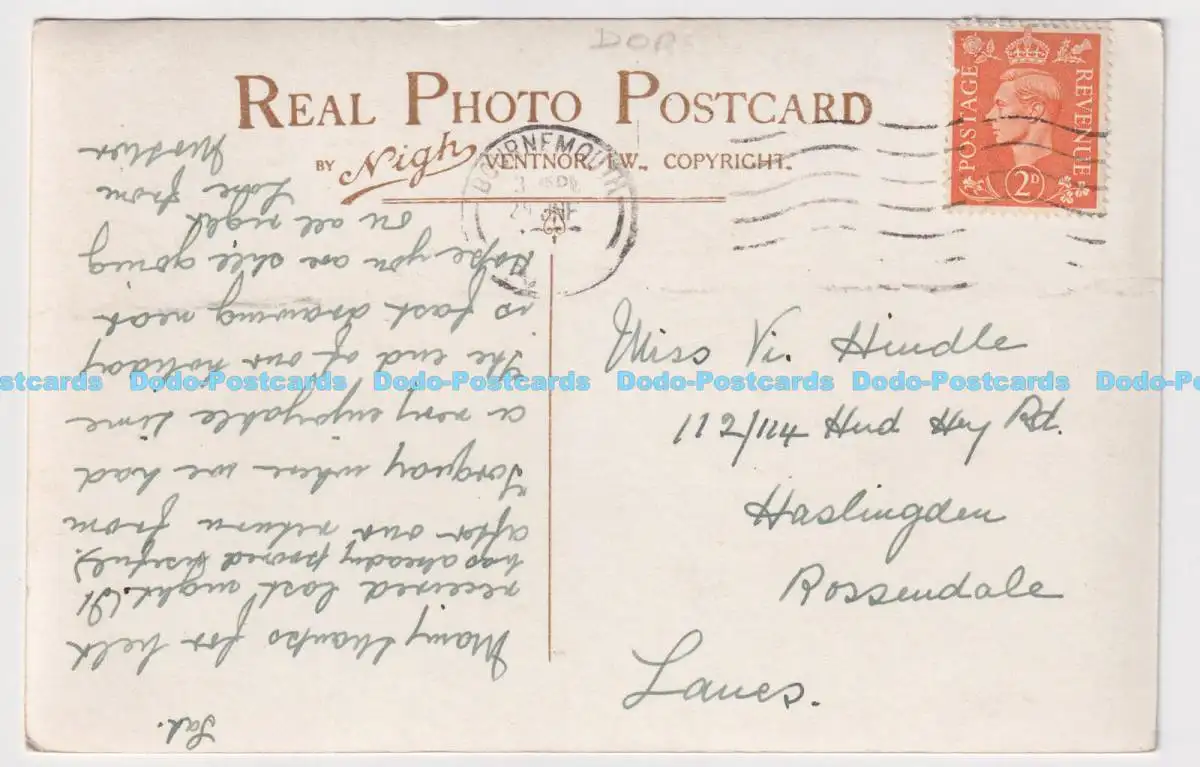 DOR
REAL PHOTO POSTCARD
BY Nigh VENTNOR, I.W. COPYRIGHT.
BOURNEMOUTH
POSTAGE REVENUE
2D
Miss Vi. Hindle
112/114 Hud Hey Rd.
Haslingden
Rossendale
Lancs.
Sat.
Many thanks for belt
received last night. (It
has already proved useful).
after our return from
Torquay where we had
a very enjoyable time
The end of our holiday
is fast drawing near
Hope you are still going
on all right
Love from
Mother
Dodo-Postcards Dodo-Postcards Dodo-Postcards Dodo-Postcards Dodo-Postcards